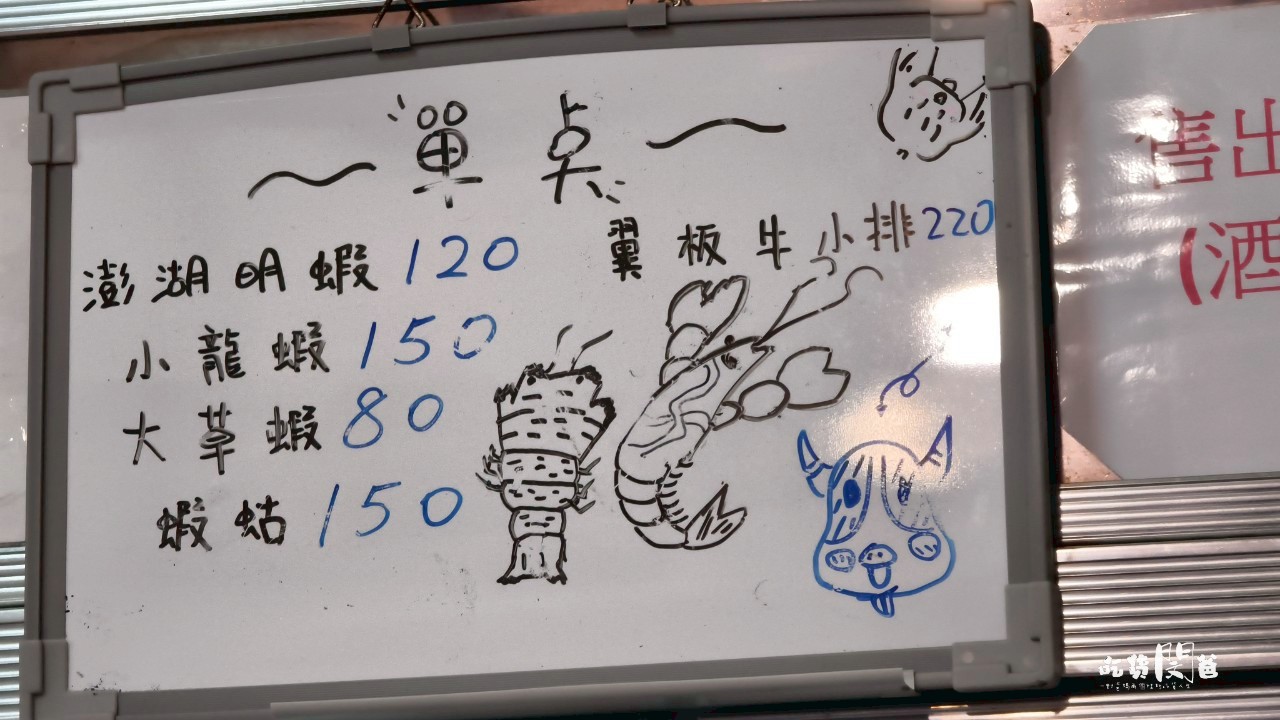 單点
澎湖明蝦120
小龍蝦150
大草蝦80
蝦蛄150
翼板牛小排220
售出
(酒